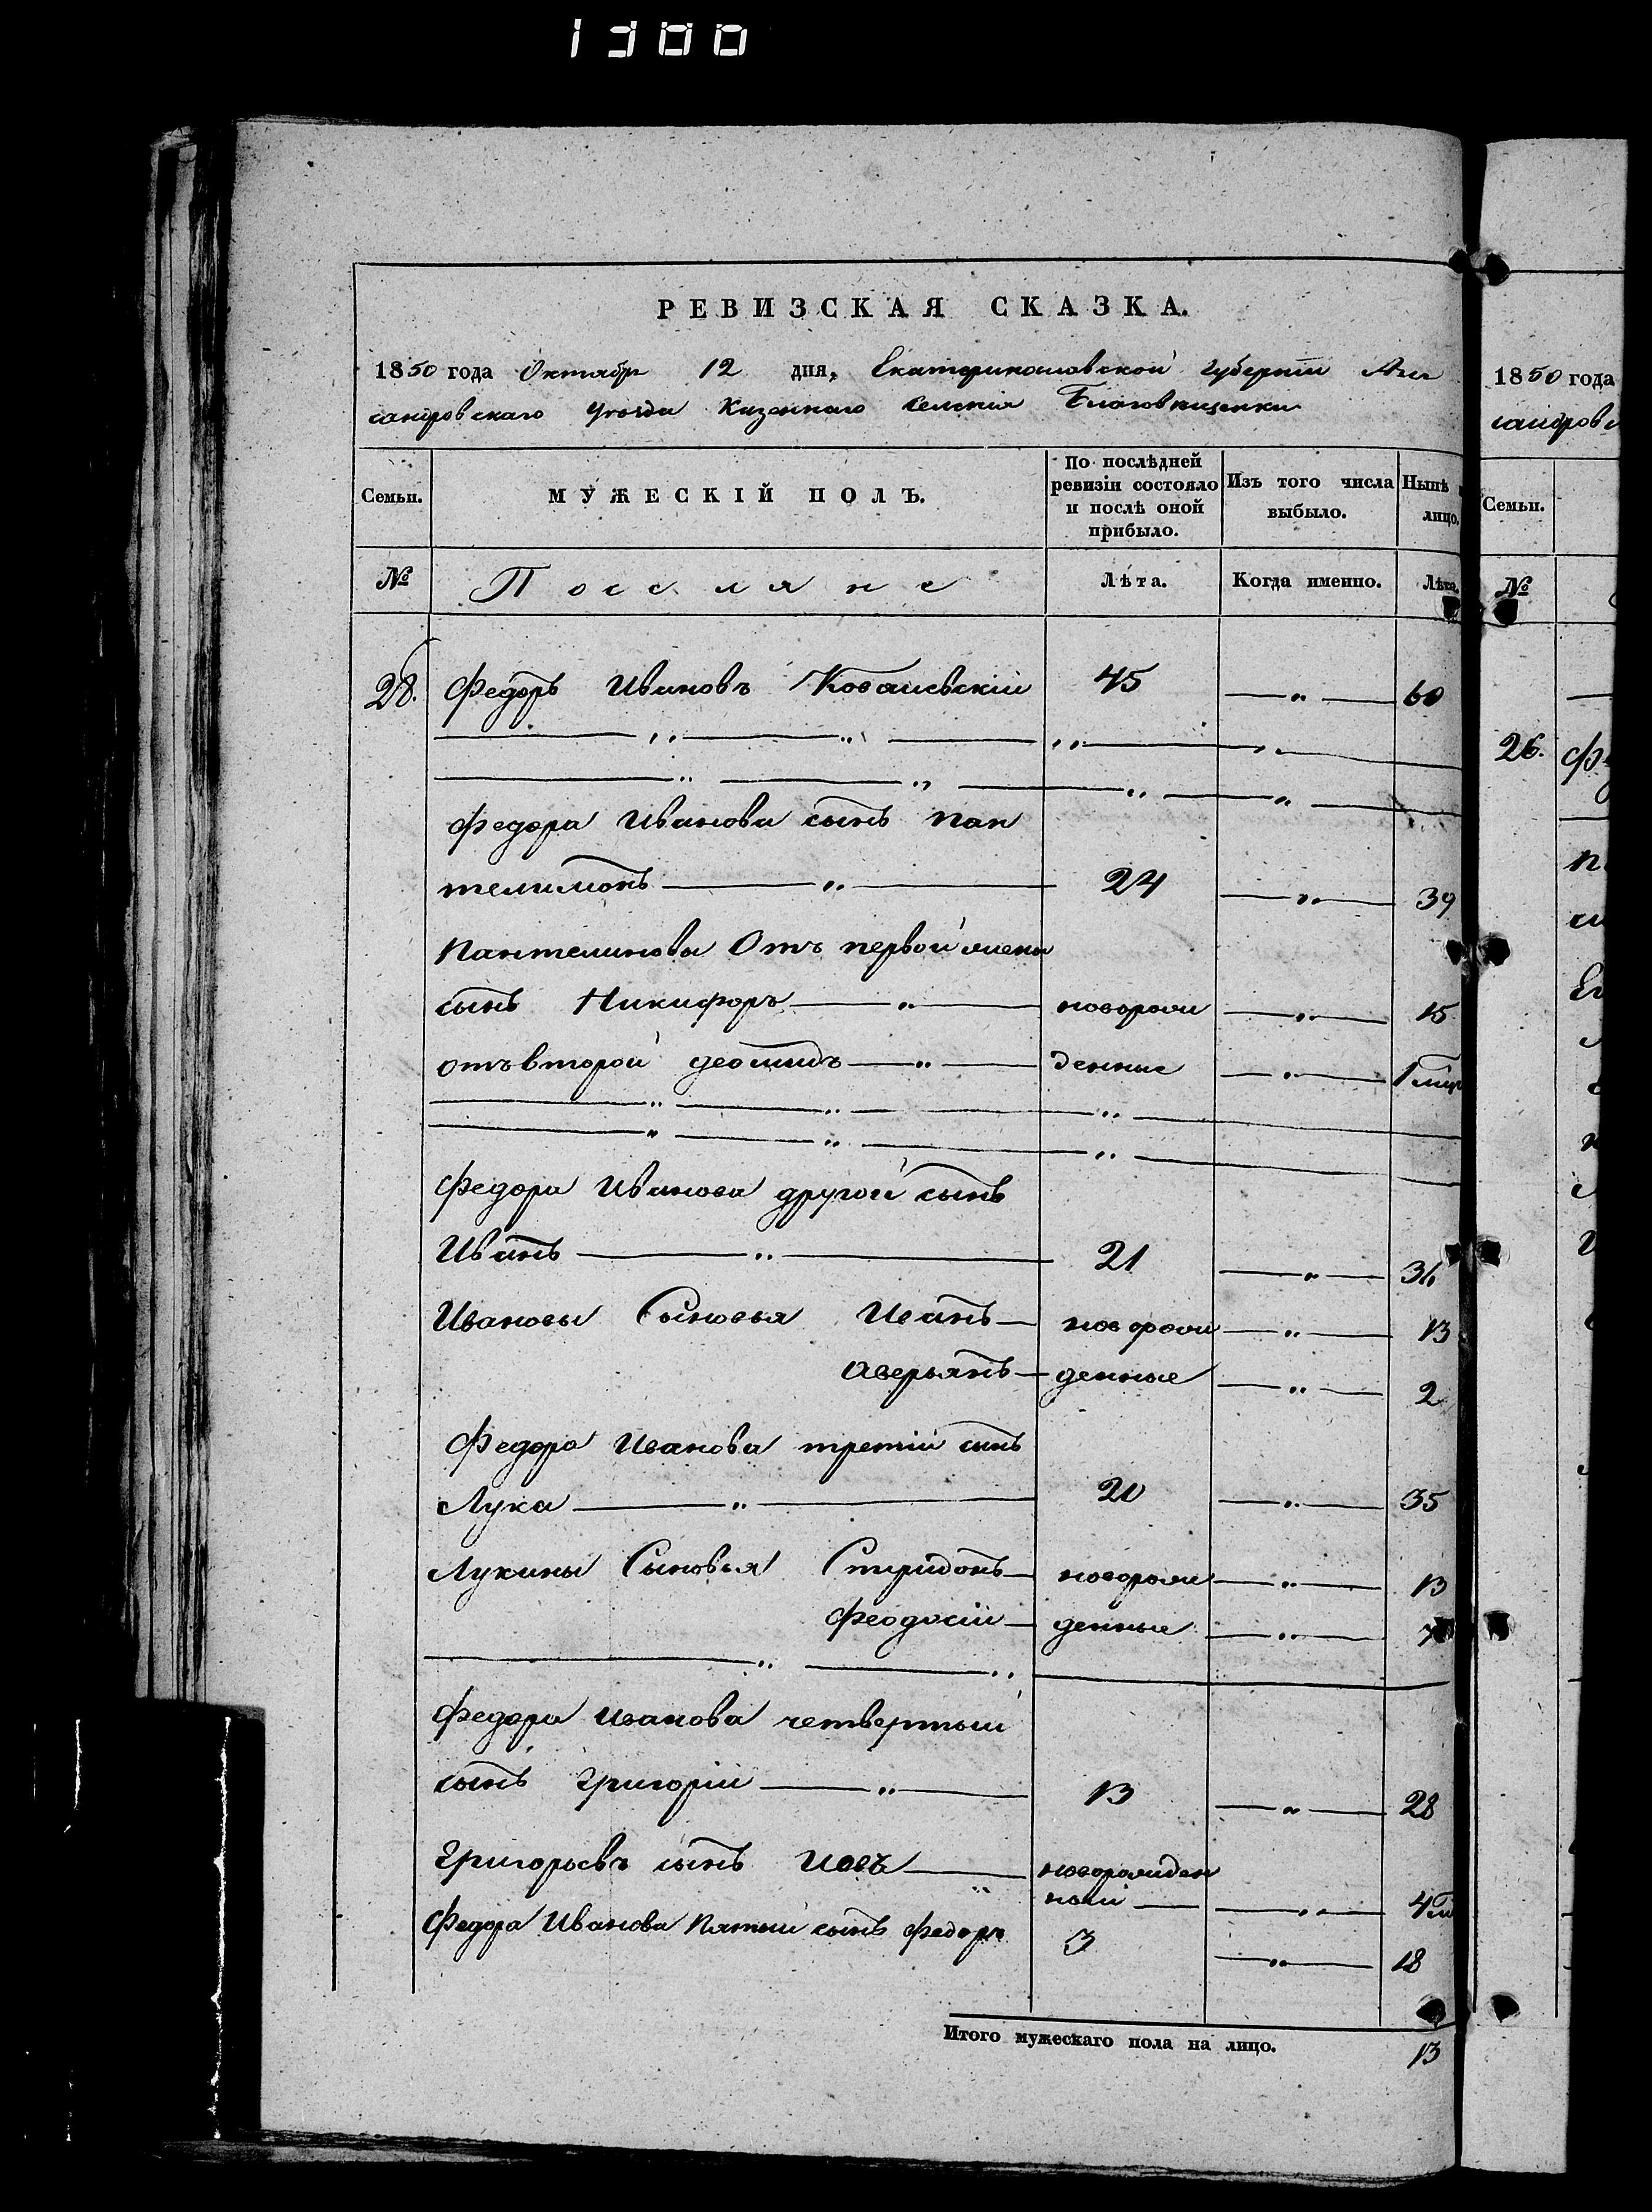 1300
РЕВИЗСКАЯ СКАЗКА.
1850 года Октября 12 дня, Екатеринославской губернии Алек
сандровскаго уезда Казеннаго селенія Благовещенки
Семьи. МУЖЕСКІЙ ПОЛЪ. По послѣдней ревизіи состояло и послѣ оной прибыло. Изъ того числа выбыло. Нынѣ лицо.
№ Поселяне Лѣта. Когда именно. Лѣта.
28. Федоръ Ивановъ 45 — „ — 60
Федора Иванова сынъ Пан
телимонъ — „ — 24 — „ — 39
Пантелимонова Отъ первой жены
сынъ Никифоръ — „ — новорож — „ — 15
отъ второй Деомидъ — „ — денные — „ — 1
Федора Иванова другой сынъ
Иванъ — „ — 21 — „ — 36
Ивановы Сыновья Иванъ — новорож — „ — 13
Аверьянъ — денные — „ — 2
Федора Иванова третій сынъ
Лука — „ — 20 — „ — 35
Лукины Сыновья Спиридонъ — новорож — „ — 13
Феодосій — денные — „ — 7
Федора Иванова четвертый
сынъ Григорій — „ — 13 — „ — 28
Григорьевъ сынъ Иовъ — новорожден
ный — — „ — 4
Федора Иванова Пятый сынъ Федоръ 3 — „ — 18
Итого мужескаго пола на лицо. 13
1850 года
сандровс
Семьи.
№
26.